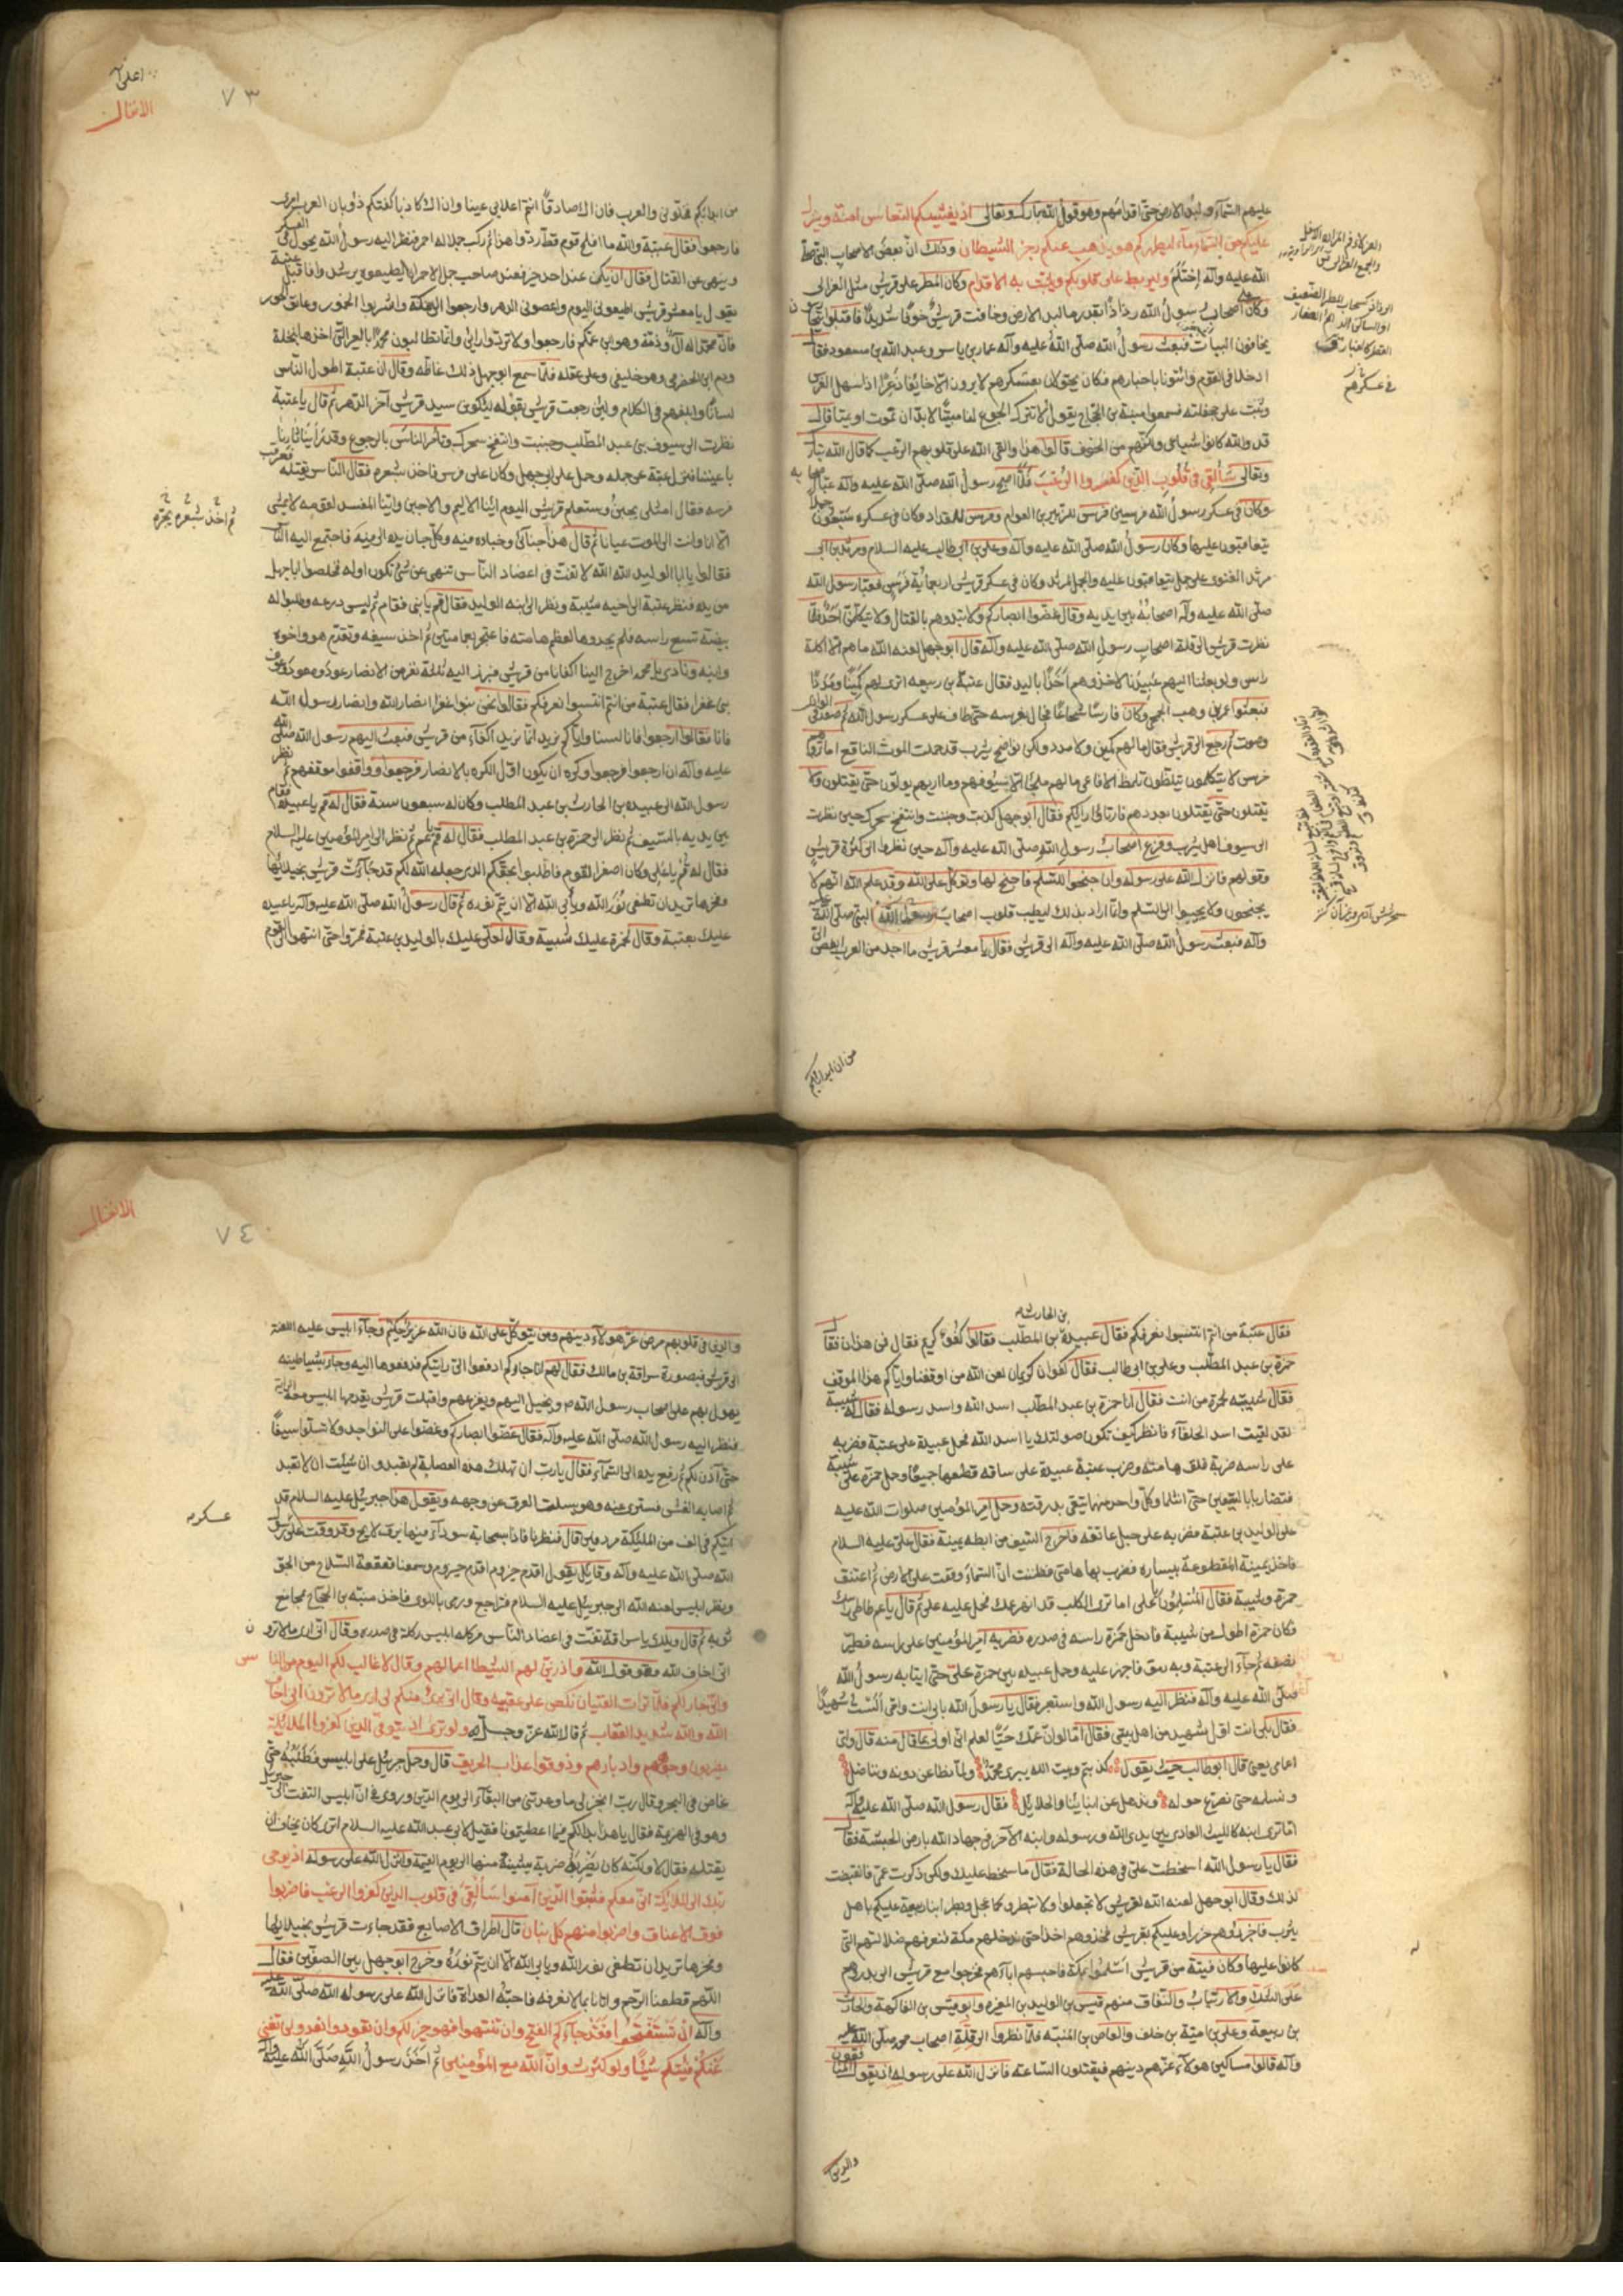 عليهم السماء ولبد الارض حتى اقدامهم وهو قول الله تبارك وتعالى اذ يغشيكم النعاس امنة وينزل
عليكم من السماء ماء ليطهركم به ويذهب عنكم رجز الشيطان وذلك ان بعض الاصحاب النبي صلى
الله عليه وآله احتلم وليربط على قلوبكم ويثبت به الاقدام وكان المطر على قريش مثل العزالى
وكان على اصحاب رسول الله رذاذا بقدر ما لبد الارض وخافت قريش خوفا شديدا فاقبلوا يتحارسون
يخافون البيات فبعث رسول الله صلى الله عليه وآله عمار بن ياسر وعبد الله بن مسعود فقال
ادخلا فى القوم وائتونا باخبارهم فكان يجولان بعسكرهم لا يرون الا خائفا ذعرا اذا سهل الفرس
وثبت على جحفلته فسمعوا منبة بن الحجاج يقول لا تترك الجوع لنا مبيتا لابد ان نموت او نميتا قال
قد والله كانوا شباعى ولكنهم من الخوف قالوا هذا والقى الله على قلوبهم الرعب كما قال الله تبارك
وتعالى سألقى فى قلوب الذين كفروا الرعب فلما اصبح رسول الله صلى الله عليه وآله عبأ اصحابه
وكان فى عسكر رسول الله فرسين فرس للزبير بن العوام وفرس للمقداد وكان فى عسكره سبعون جملا
يتعاقبون عليها وكان رسول الله صلى الله عليه وآله وعلى بن ابى طالب عليه السلام ومرثد بن ابى
مرثد الغنوى على جمل يتعاقبون عليه والجمل لمرثد وكان فى عسكر قريش اربعمائة فرس فعبأ رسول الله
صلى الله عليه وآله اصحابه بين يديه وقال غضوا ابصاركم ولا تبدوهم بالقتال ولا يتكلمن احد فلما
نظرت قريش الى قلة اصحاب رسول الله صلى الله عليه وآله قال ابو جهل لعنه الله ما هم الا اكلة
راس ولو بعثنا اليهم عبيدنا لاخذوهم اخذا باليد فقال عتبة بن ربيعه اترى لهم كمينا ومددا
فبعثوا عمر بن وهب الجمحى وكان فارسا شجاعا فجال بفرسه حتى طاف على عسكر رسول الله ثم صعد فى الوادى
وصوت ثم رجع الى قريش فقال ما لهم كمين ولا مدد ولكن نواضح يثرب قد حملت الموت الناقع اما ترونهم
خرس لا يتكلمون يتلمظون تلمظ الافاعى ما لهم ملجأ الا سيوفهم وما اريهم يولون حتى يقتلون ولا
يقتلون حتى يقتلون بعددهم فارتاؤا رايكم فقال ابو جهل كذبت وجبنت وانتفخ سحرك حين نظرت
الى سيوف اهل يثرب وفزع اصحاب رسول الله صلى الله عليه وآله حين نظروا الى كثرة قريش
وقوتهم فانزل الله على رسوله وان جنحوا للسلم فاجنح لها وتوكل على الله وقد علم الله انهم لا
يجنحون ولا يجيبوا الى السلم وانما اراد بذلك ليطيب قلوب اصحاب رسول الله النبى صلى الله عليه
وآله فبعث رسول الله صلى الله عليه وآله الى قريش فقال يا معشر قريش ما احد من العرب ابغض الى
من ان ابدأبكم
فى عسكرهم
٧٣
اعلى
الانفال
من ابدأ بكم خلونى والعرب فان اك صادقا انتم اعلا بى عينا وان اك كاذبا كفتكم ذؤبان العرب امرى
فارجعوا فقال عتبة والله ما افلح قوم قط ردوا هذا ثم ركب جملا له احمر فنظر اليه رسول الله يجول فى العسكر
وينهى عن القتال فقال ان يكن عند احد خير فعند صاحب جمل الاحمر ان يطيعوه يرشدوا فاقبل عتبة
يقول يا معشر قريش اطيعونى اليوم واعصونى الدهر وارجعوا الى مكة واشربوا الخمور وعانقوا الحور
فان محمدا له ال وذمة وهو ابن عمكم فارجعوا ولا تردوا رايى وانما تطالبون محمدا بالعير التى اخذها بنخلة
ودم ابن الحضرمى وهو حليفى وعلى عقله فلما سمع ابو جهل ذلك غاظه وقال ان عتبة اطول الناس
لسانا وابلغهم فى الكلام ولئن رجعت قريش بقوله ليكونن سيد قريش آخر الدهر ثم قال يا عتبة
نظرت الى سيوف بنى عبد المطلب وجبنت وانتفخ سحرك وتأمر الناس بالرجوع وقد رأينا ثارنا
باعيننا فنزل عتبة عن جمله وحمل على ابى جهل وكان على فرس فاخذ بشعره فقال الناس يقتله فعرقب
فرسه فقال امثلى يجبن وستعلم قريش اليوم اينا الاليم والاجبن واينا المفسد لقومه لا يمشى
الا انا وانت الى الموت عيانا ثم قال هذا جناى وخياره فيه وكل جان يده الى فيه فاجتمع اليه الناس
فقالوا يا ابا الوليد الله الله لا تفت فى اعضاد الناس تنهى عن شئ تكون اوله فخلصوا ابا جهل
من يده فنظر عتبة الى اخيه شيبة ونظر الى ابنه الوليد فقال قم يا بنى فقام ثم لبس درعه وطلبوا له
بيضة تسع راسه فلم يجدوها لعظم هامته فاعتجر بعمامتين ثم اخذ سيفه وتقدم هو واخوه
وابنه ونادى يا محمد اخرج الينا اكفانا من قريش فبرز اليه ثلثة نفر من الانصار عوذ ومعوذ وعوف
بنى عفرا فقال عتبة من انتم انتسبوا لنعرفكم فقالوا نحن بنو عفرا انصار الله وانصار رسول الله
فقالوا ارجعوا فانا لسنا واياكم نريد انما نريد الاكفاء من قريش فبعث اليهم رسول الله صلى الله
عليه وآله ان ارجعوا فرجعوا وكره ان يكون اول الكره بالانصار فرجعوا وواقفوا موقفهم ثم نظر
رسول الله الى عبيده بن الحارث بن عبد المطلب وكان له سبعون سنة فقال له قم يا عبيدة فقام
بين يديه بالسيف ثم نظر الى حمزة بن عبد المطلب فقال له قم يا عم ثم نظر الى امير المؤمنين عليه السلام
فقال له قم يا على وكان اصغر القوم فاطلبوا بحقكم الذى جعله الله لكم قد جاءت قريش بخيلائها
وفخرها تريد ان تطفى نور الله ويأبى الله الا ان يتم نوره ثم قال رسول الله صلى الله عليه وآله يا عبيده
عليك بعتبة وقال لحمزة عليك شيبة وقال لعلى عليك بالوليد بن عتبة فمروا حتى انتهوا الى القوم
ثم اخذ بشعره يجره
بن الحارث
فقال عتبة من انتم انتسبوا نعرفكم فقال عبيدة بن المطلب فقالوا كفؤ كريم فقال فمن هذان فقال
حمزة بن عبد المطلب وعلى بن ابى طالب فقال كفوان كريمان لعن الله من اوقفنا واياكم هذا الموقف
فقال شيبة لحمزة من انت فقال انا حمزة بن عبد المطلب اسد الله واسد رسوله فقال له شيبة
لقد لقيت اسد الحلفاء فانظر كيف تكون صولتك يا اسد الله فحمل عبيدة على عتبة فضربه
على راسه ضربة فلق هامته وضرب عتبة عبيدة على ساقه قطعها جميعا وحمل حمزة على شيبة
فتضاربا بالسيفين حتى انثلما وكل واحد منهما يتقى بدرقته وحمل امير المؤمنين صلوات الله عليه
على الوليد بن عتبة فضربه على حبل عاتقه فاخرج السيف من ابطه يمينه فقال على عليه السلام
فاخذ يمينة المقطوعة بيساره فضرب بها هامتى فظننت ان السماء وقعت على الارض ثم اعتنق
حمزة وشيبة فقال المسلمون لعلى اما ترى الكلب قد انهر عمك فحمل عليه على ثم قال يا عم طاطى راسك
فكان حمزة اطول من شيبة فادخل حمزة راسه فى صدره فضربه امير المؤمنين على راسه فطير
نصفه ثم جاء الى عتبة وبه رمق فاجهز عليه وحمل عبيده بين حمزة على حتى اتيا به رسول الله
صلى الله عليه وآله فنظر اليه رسول الله واستعبر فقال يا رسول الله بابى انت وامى الست شهيدا
فقال بلى انت اول شهيد من اهل بيتى فقال اما لو ان عمك حيا لعلم انى اولى بما قال منه قال واى
اعمامى يعنى قال ابو طالب حيث يقول كذبتم وبيت الله يبزى محمد ولما نطاعن دونه ونناضل
ونسلمه حتى نصرع حوله ونذهل عن ابنائنا والحلائل فقال رسول الله صلى الله عليه وآله
اما ترى ابنه كالليث العادى بين يدى الله ورسوله وابنه الآخر فى جهاد الله بارض الحبشة فقال
فقال يا رسول الله اسخطت على فى هذه الحالة فقال ما سخط عليك ولكن ذكرت عمى فانقبضت
لذلك وقال ابو جهل لعنه الله لقريش لا تعجلوا ولا تبطروا كما عجل وبطر ابنا ربيعة عليكم باهل
يثرب فاجزروهم جزرا وعليكم بقريش فخذوهم اخذا حتى ندخلهم مكة فنعرفهم ضلالتهم التى
كانوا عليها وكان فيتة من قريش اسلموا بمكة فاحبسهم اباؤهم فخرجوا مع قريش الى بدر وهم
على الشك والارتياب والنفاق منهم قيس بن الوليد بن المغيره وابو قيس بن الفاكهة والحارث
بن ربيعة وعلى بن امية بن خلف والعاص بن المنبه فلما نظروا الى قلة اصحاب محمد صلى الله عليه
وآله قالوا مساكين هولاء غرهم دينهم فيقتلون الساعة فانزل الله على رسوله اذ يقول المنافقون
والذين
الانفال
٧٤
والذين فى قلوبهم مرض غر هولاء دينهم ومن يتوكل على الله فان الله عزيز حكيم وجاء ابليس عليه اللعنة
الى قريش فى صورة سراقة بن مالك فقال لهم انا جاركم ادفعوا الى رايتكم فدفعوها اليه وجاء بشياطينه
يهول بهم على اصحاب رسول الله ويخيل اليهم ويفزعهم واقبلت قريش يقدمها ابليس معه الراية
فنظر اليه رسول الله صلى الله عليه وآله فقال غضوا ابصاركم وعضوا على النواجد ولا تسلوا سيفا
حتى آذن لكم ثم رفع يده الى السماء فقال يا رب ان تهلك هذه العصابة لم تعبد وان شئت ان لا تعبد
ثم اصابه الغشى فسترى عنه وهو يسلت العرق عن وجهه ويقول هذا جبرئيل عليه السلام قد
اتيكم فى الف من الملئكة مردفين قال فنظرنا فاذا بسحابة سوداء فيها برق لايح وقد وقعت على عسكر رسول
الله صلى الله عليه وآله وقائل يقول اقدم حيزوم اقدم حيزوم وسمعنا قعقعة السلاح من الجو
ونظر ابليس لعنه الله الى جبرئيل عليه السلام فتراجع ورمى باللوى فاخذ منبه بن الحجاج بمجامع
ثوبه ثم قال ويلك يا سراقة تفت فى اعضاد الناس فركله ابليس ركلة فى صدره وقال انى ارى ما لا ترون
انى اخاف الله وهو قول الله واذ زين لهم الشيطا اعمالهم وقال لا غالب لكم اليوم من الناس
وانى جار لكم فلما تراءت الفئتان نكص على عقبيه وقال انى برئ منكم انى ارى ما لا ترون انى اخاف
الله والله شديد العقاب ثم قال الله عز وجل ولو ترى اذ يتوفى الذين كفروا الملائكة
يضربون وجوههم وادبارهم وذوقوا عذاب الحريق قال وحمل جبرئيل على ابليس فطلبه حتى
غاص فى البحر وقال رب انجز لى ما وعدتنى من البقاء الى يوم الدين وروى فى ان ابليس التفت الى جبرئيل
وهو فى الهزيمة فقال يا هذا بدا لكم فيما اعطيتمونا فقيل لابى عبد الله عليه السلام اترى كان يخاف ان
يقتله فقال لا ولكنه كان يضربه ضربة يشينه منها الى يوم القيمة وانزل الله على رسوله اذ يوحى
ربك الى الملائكة انى معكم فثبتوا الذين آمنوا سألقى فى قلوب الذين كفروا الرعب فاضربوا
فوق الاعناق واضربوا منهم كل بنان قال اطراف الاصابع فقد جاءت قريش بخيلائها
وفخرها تريد ان تطفى نور الله ويابى الله الا ان يتم نوره وخرج ابو جهل بين الصفين فقال
اللهم قطعنا الرحم واتانا بما لا نعرفه فاحنه الغداة فانزل الله على رسوله الله صلى الله عليه
وآله ان تستفتحوا فقد جاءكم الفتح وان تنتهوا فهو خير لكم وان تعودوا نعد ولن تغنى
عنكم فئتكم شيئا ولو كثرت وان الله مع المؤمنين ثم اخذ رسول الله صلى الله عليه وآله
عسكره